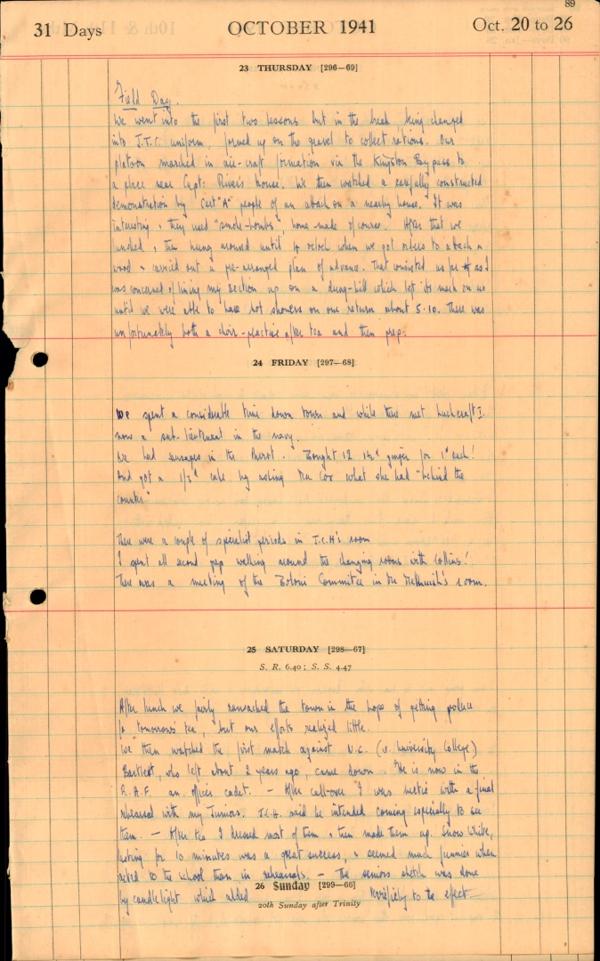 89
31 Days OCTOBER 1941 Oct. 20 to 26
23 THURSDAY [296—69]
Field Day.
We went into the first two lessons but in the break, having changed
into J.T.C. uniform, formed up on the gravel to collect rations. Our
platoon marched in air-craft formation via the Kingston Bypass to
a place near Capt: River's house. We then watched a carefully constructed
demonstration by Cert "A" people of an attack on a nearby house. It was
interesting & they used "smoke-bombs", home made of course. After that we
lunched, & then hung around until 2 o'clock when we got orders to attack a
wood & carried out a pre-arranged plan of advance. That consisted as far as I
was concerned of lining my section up on a dung-hill which left its mark on us
until we were able to have hot showers on our return about 5.10. There was
unfortunately both a choir-practice after tea and then prep.
24 FRIDAY [297—68]
We spent a considerable time down town and while there met
now a sub-lieutenant in the navy.
We had sausages in the Parrot. Bought 12 ginger for 1d each!
And got a 1/3d cake by asking Mrs Cox what she had "behind the
counter"
There were a couple of specialist periods in J.C.H's room
I spent all second prep walking around the changing rooms with Collins!
There was a meeting of the Committee in the room.
25 SATURDAY [298—67]
S. R. 6.40; S. S. 4.47
After lunch we fairly ransacked the town in the hope of getting produce
for "tomorrow's tea", but our efforts realized little.
We then watched the first match against U.C. (v. University College)
Bartlett, who left about 2 years ago, came down. He is now in the
R.A.F. an officer cadet. — After call-over I was busied with a final
rehearsal with my Juniors. J.C.H. said he intended coming especially to see
them. — After tea I dressed most of them & then made them up. Snow White,
lasting for 10 minutes was a great success, & seemed much funnier when
acted to the school than in rehearsals. — The seniors sketch was done
by candlelight which added terrifically to the effect.
26 Sunday [299—66]
20th Sunday after Trinity